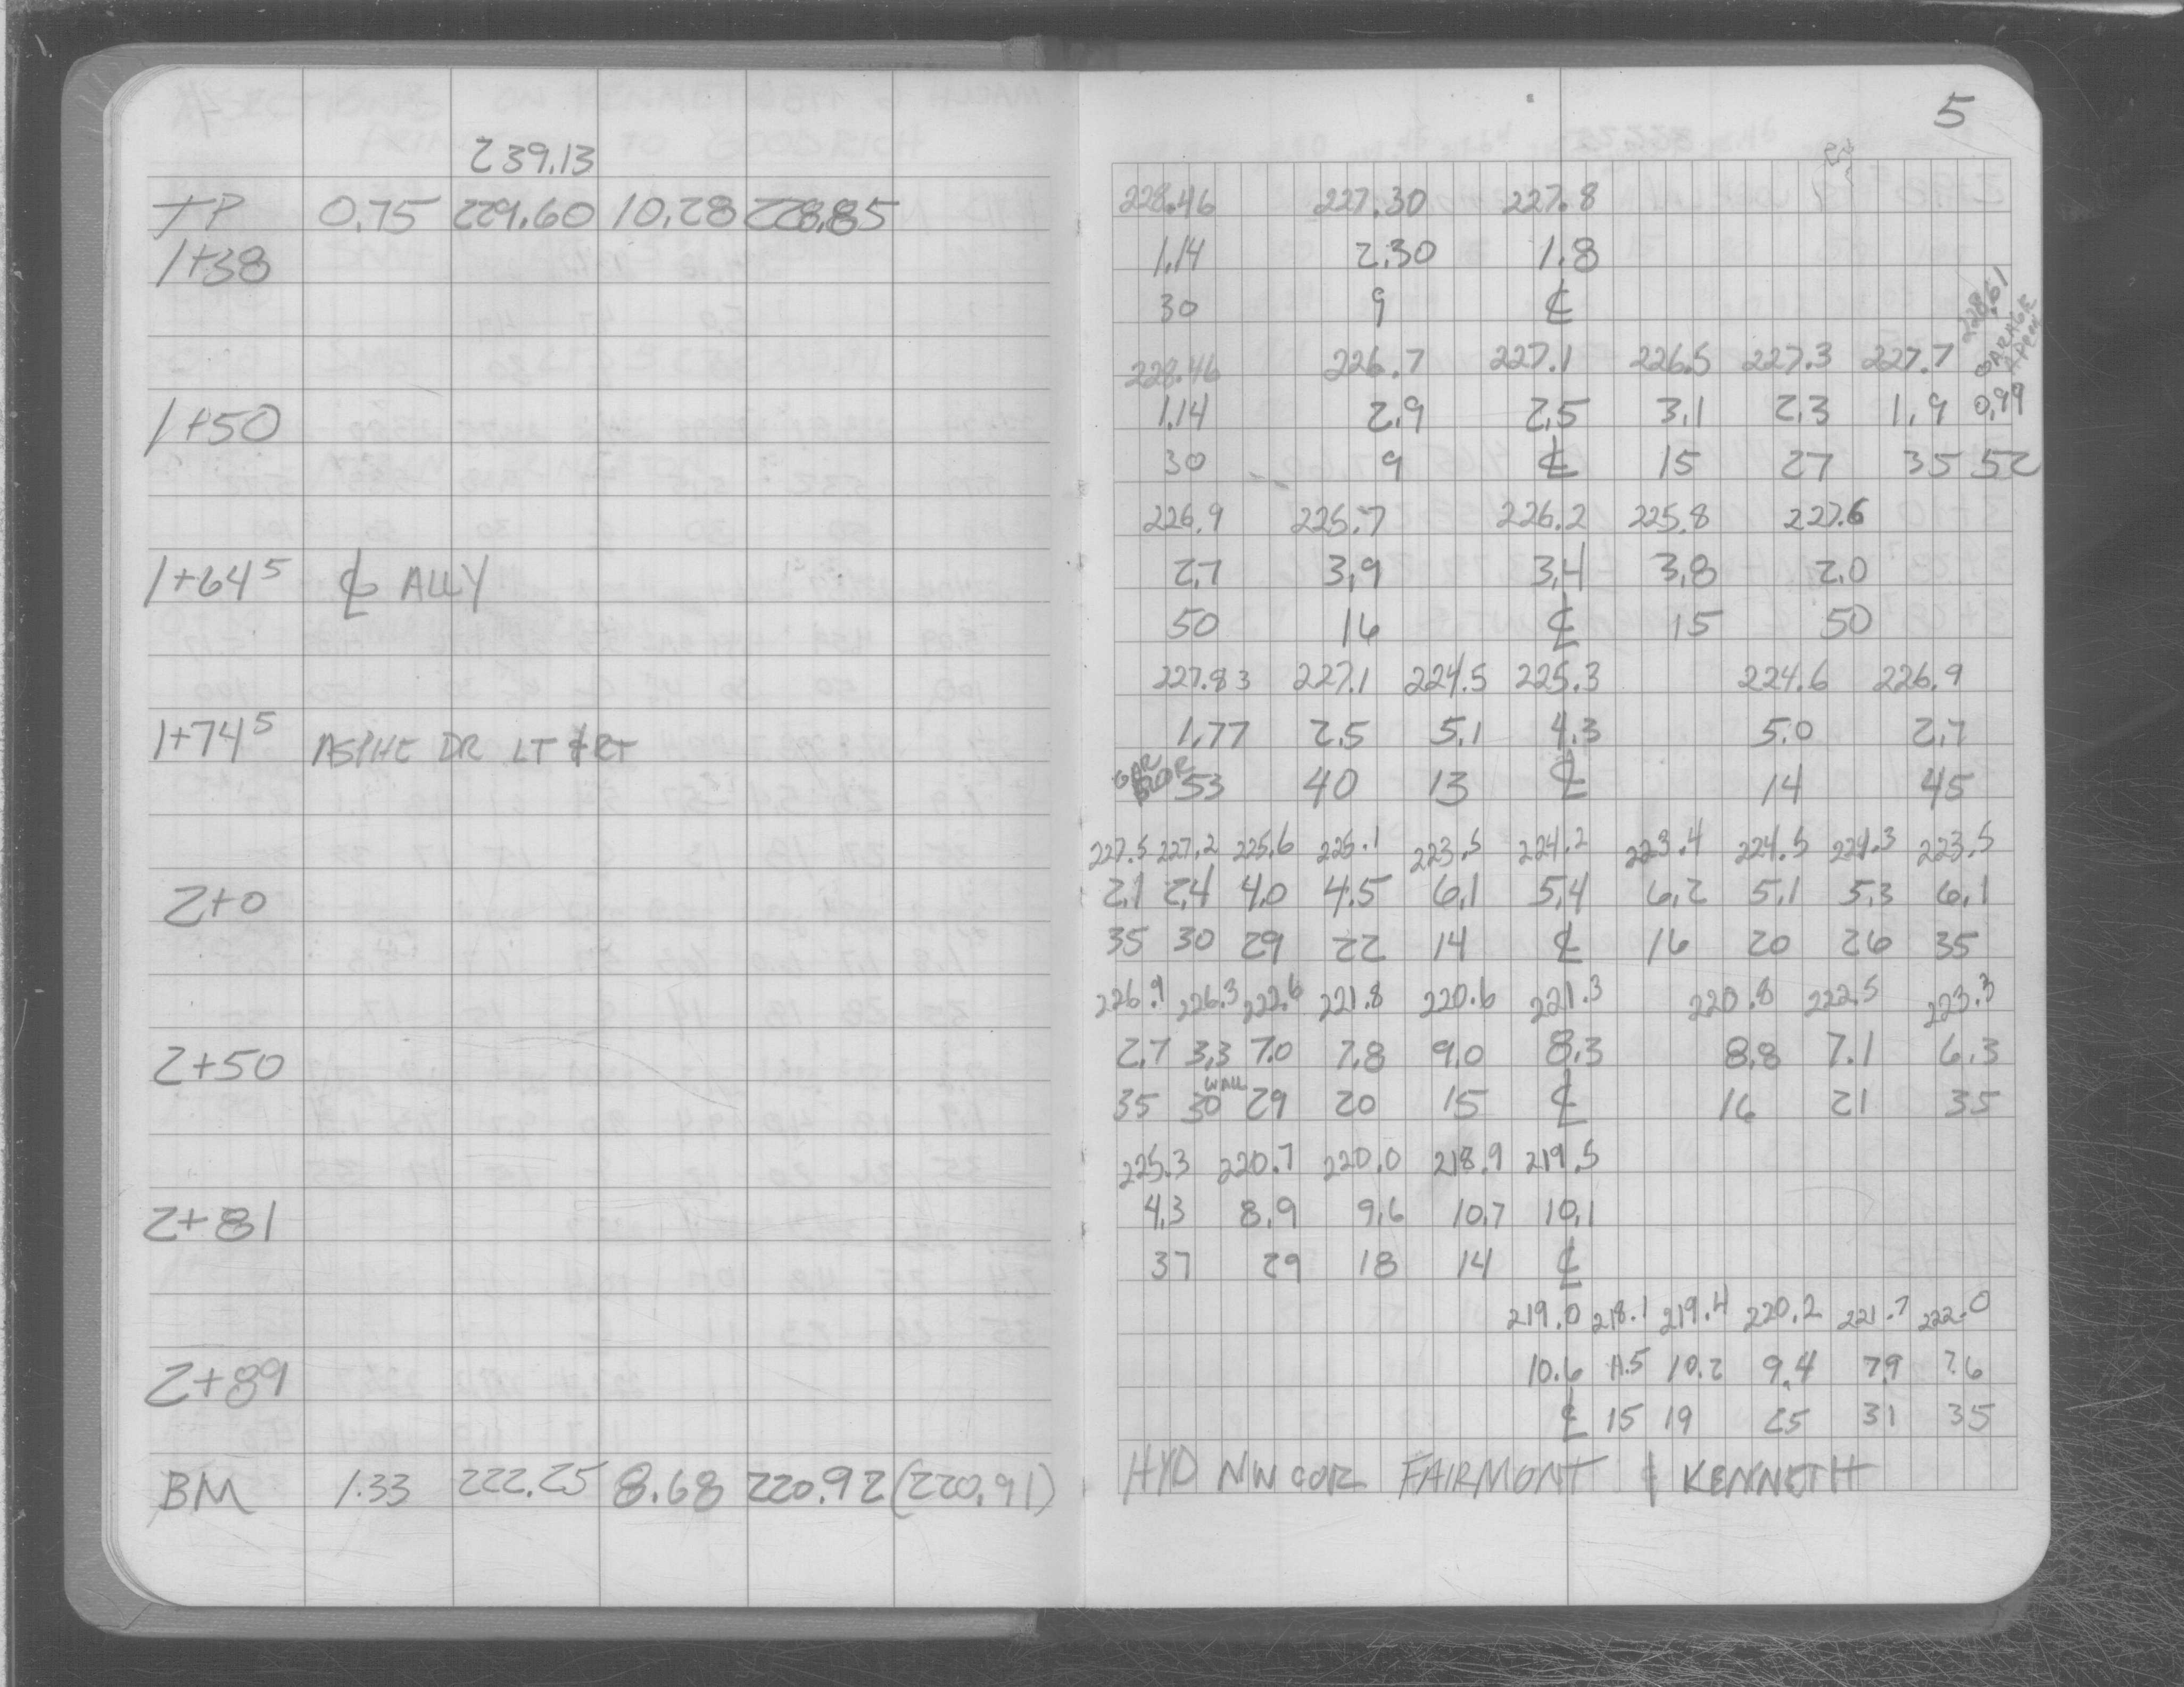 239.13
TP 0.75 229.60 10.28 228.85
1+38
1+50
1+64⁵ ℄ ALLY
1+74⁵ ASPHT DR LT & RT
2+0
2+50
2+81
2+89
BM 1.33 222.25 8.68 220.92 (220.91)
5
228.46 227.30 227.8
1.14 2.30 1.8
30 9 ℄
228.61
GARAGE
228.46 226.7 227.1 226.5 227.3 227.7
1.14 2.9 2.5 3.1 2.3 1.9 0.99
30 9 ℄ 15 27 35 52
226.9 225.7 226.2 225.8 227.6
2.7 3.9 3.4 3.8 2.0
50 16 ℄ 15 50
227.83 227.1 224.5 225.3 224.6 226.9
1.77 2.5 5.1 4.3 5.0 2.7
GAR
53 40 13 ℄ 14 45
227.5 227.2 225.6 225.1 223.5 224.2 223.4 224.5 224.3 223.5
2.1 2.4 4.0 4.5 6.1 5.4 6.2 5.1 5.3 6.1
35 30 29 22 14 ℄ 16 20 26 35
226.9 226.3 222.6 221.8 220.6 221.3 220.8 222.5 223.3
2.7 3.3 7.0 7.8 9.0 8.3 8.8 7.1 6.3
WALL
35 30 29 20 15 ℄ 16 21 35
225.3 220.7 220.0 218.9 219.5
4.3 8.9 9.6 10.7 10.1
37 29 18 14 ℄
219.0 218.1 219.4 220.2 221.7 222.0
10.6 11.5 10.2 9.4 7.9 7.6
℄ 15 19 25 31 35
HYD NW COR FAIRMONT & KENNETH